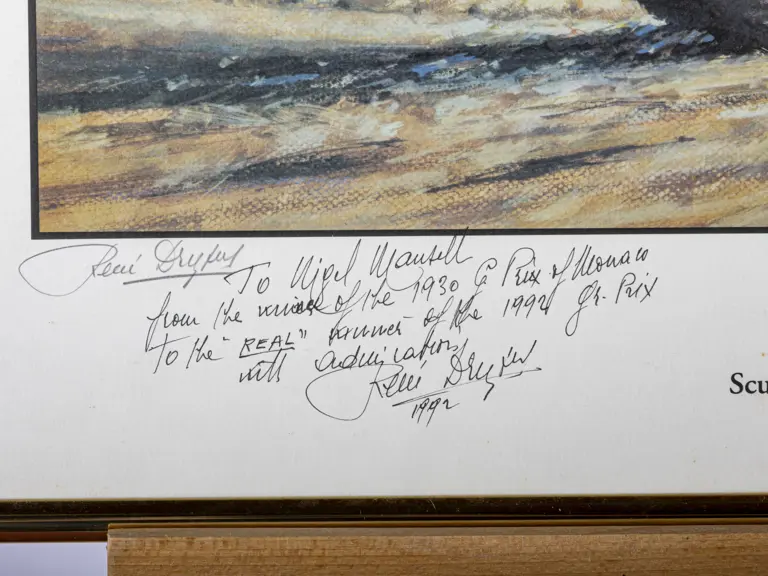 René Dreyfus
To Nigel Mansell
from the winner of the 1930 G Prix of Monaco
To the "REAL" winner of the 1992 Gr. Prix
with admiration,
René Dreyfus
1992
Scu